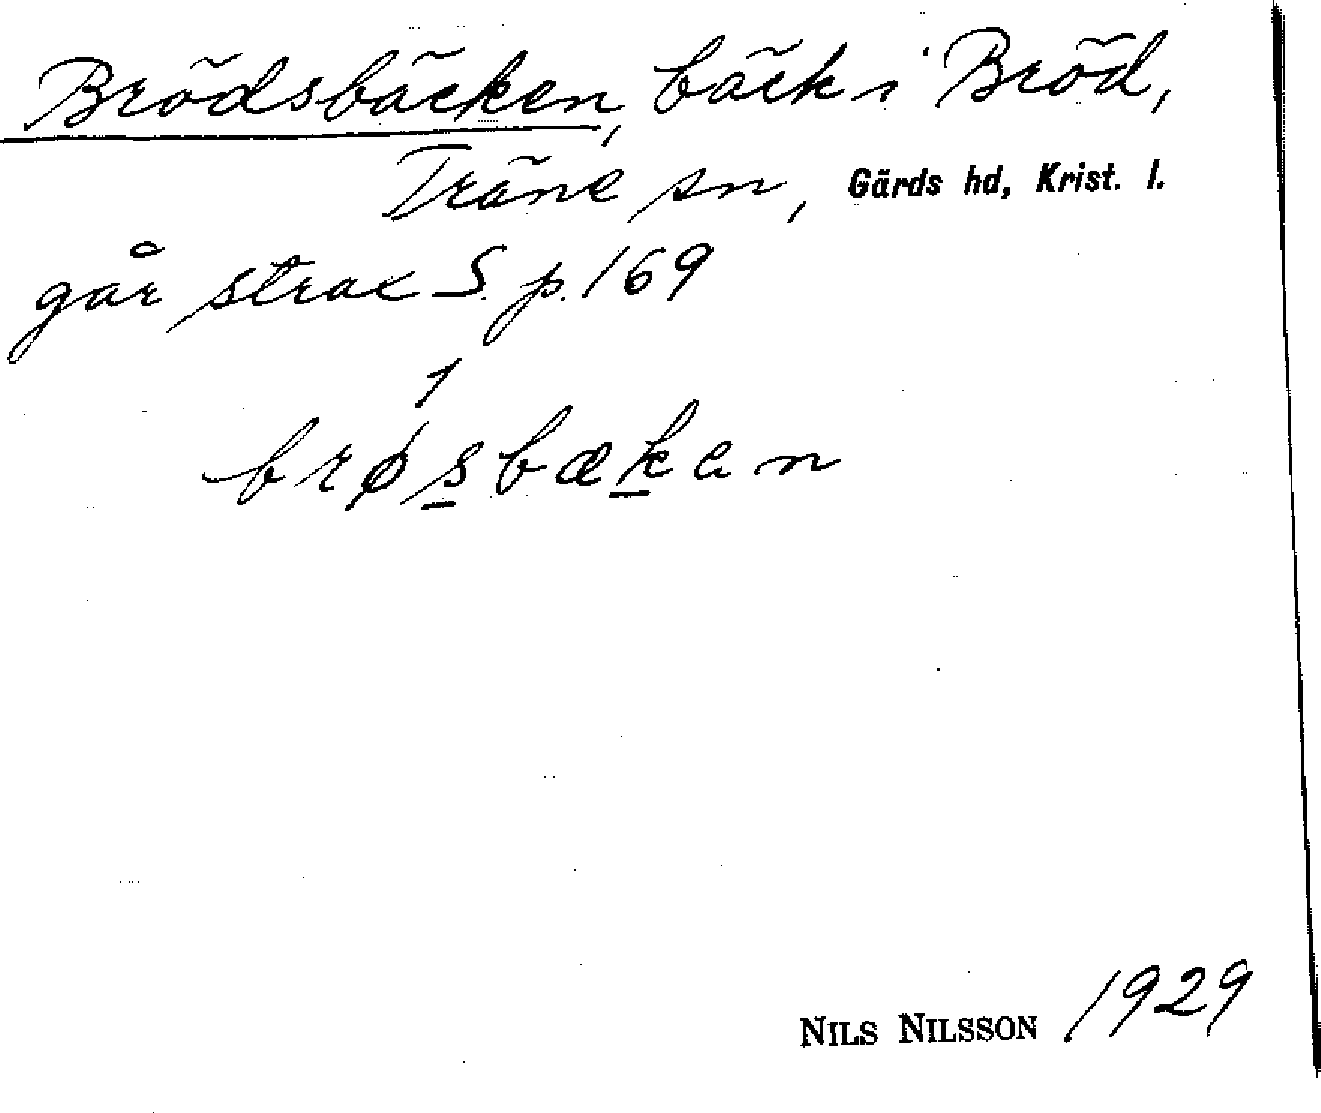 Brödsbäcken, bäck i Bröd,
Träne sn, Gärds hd, Krist. l.
går strax S. p. 169
1
brøsbækan
NILS NILSSON 1929